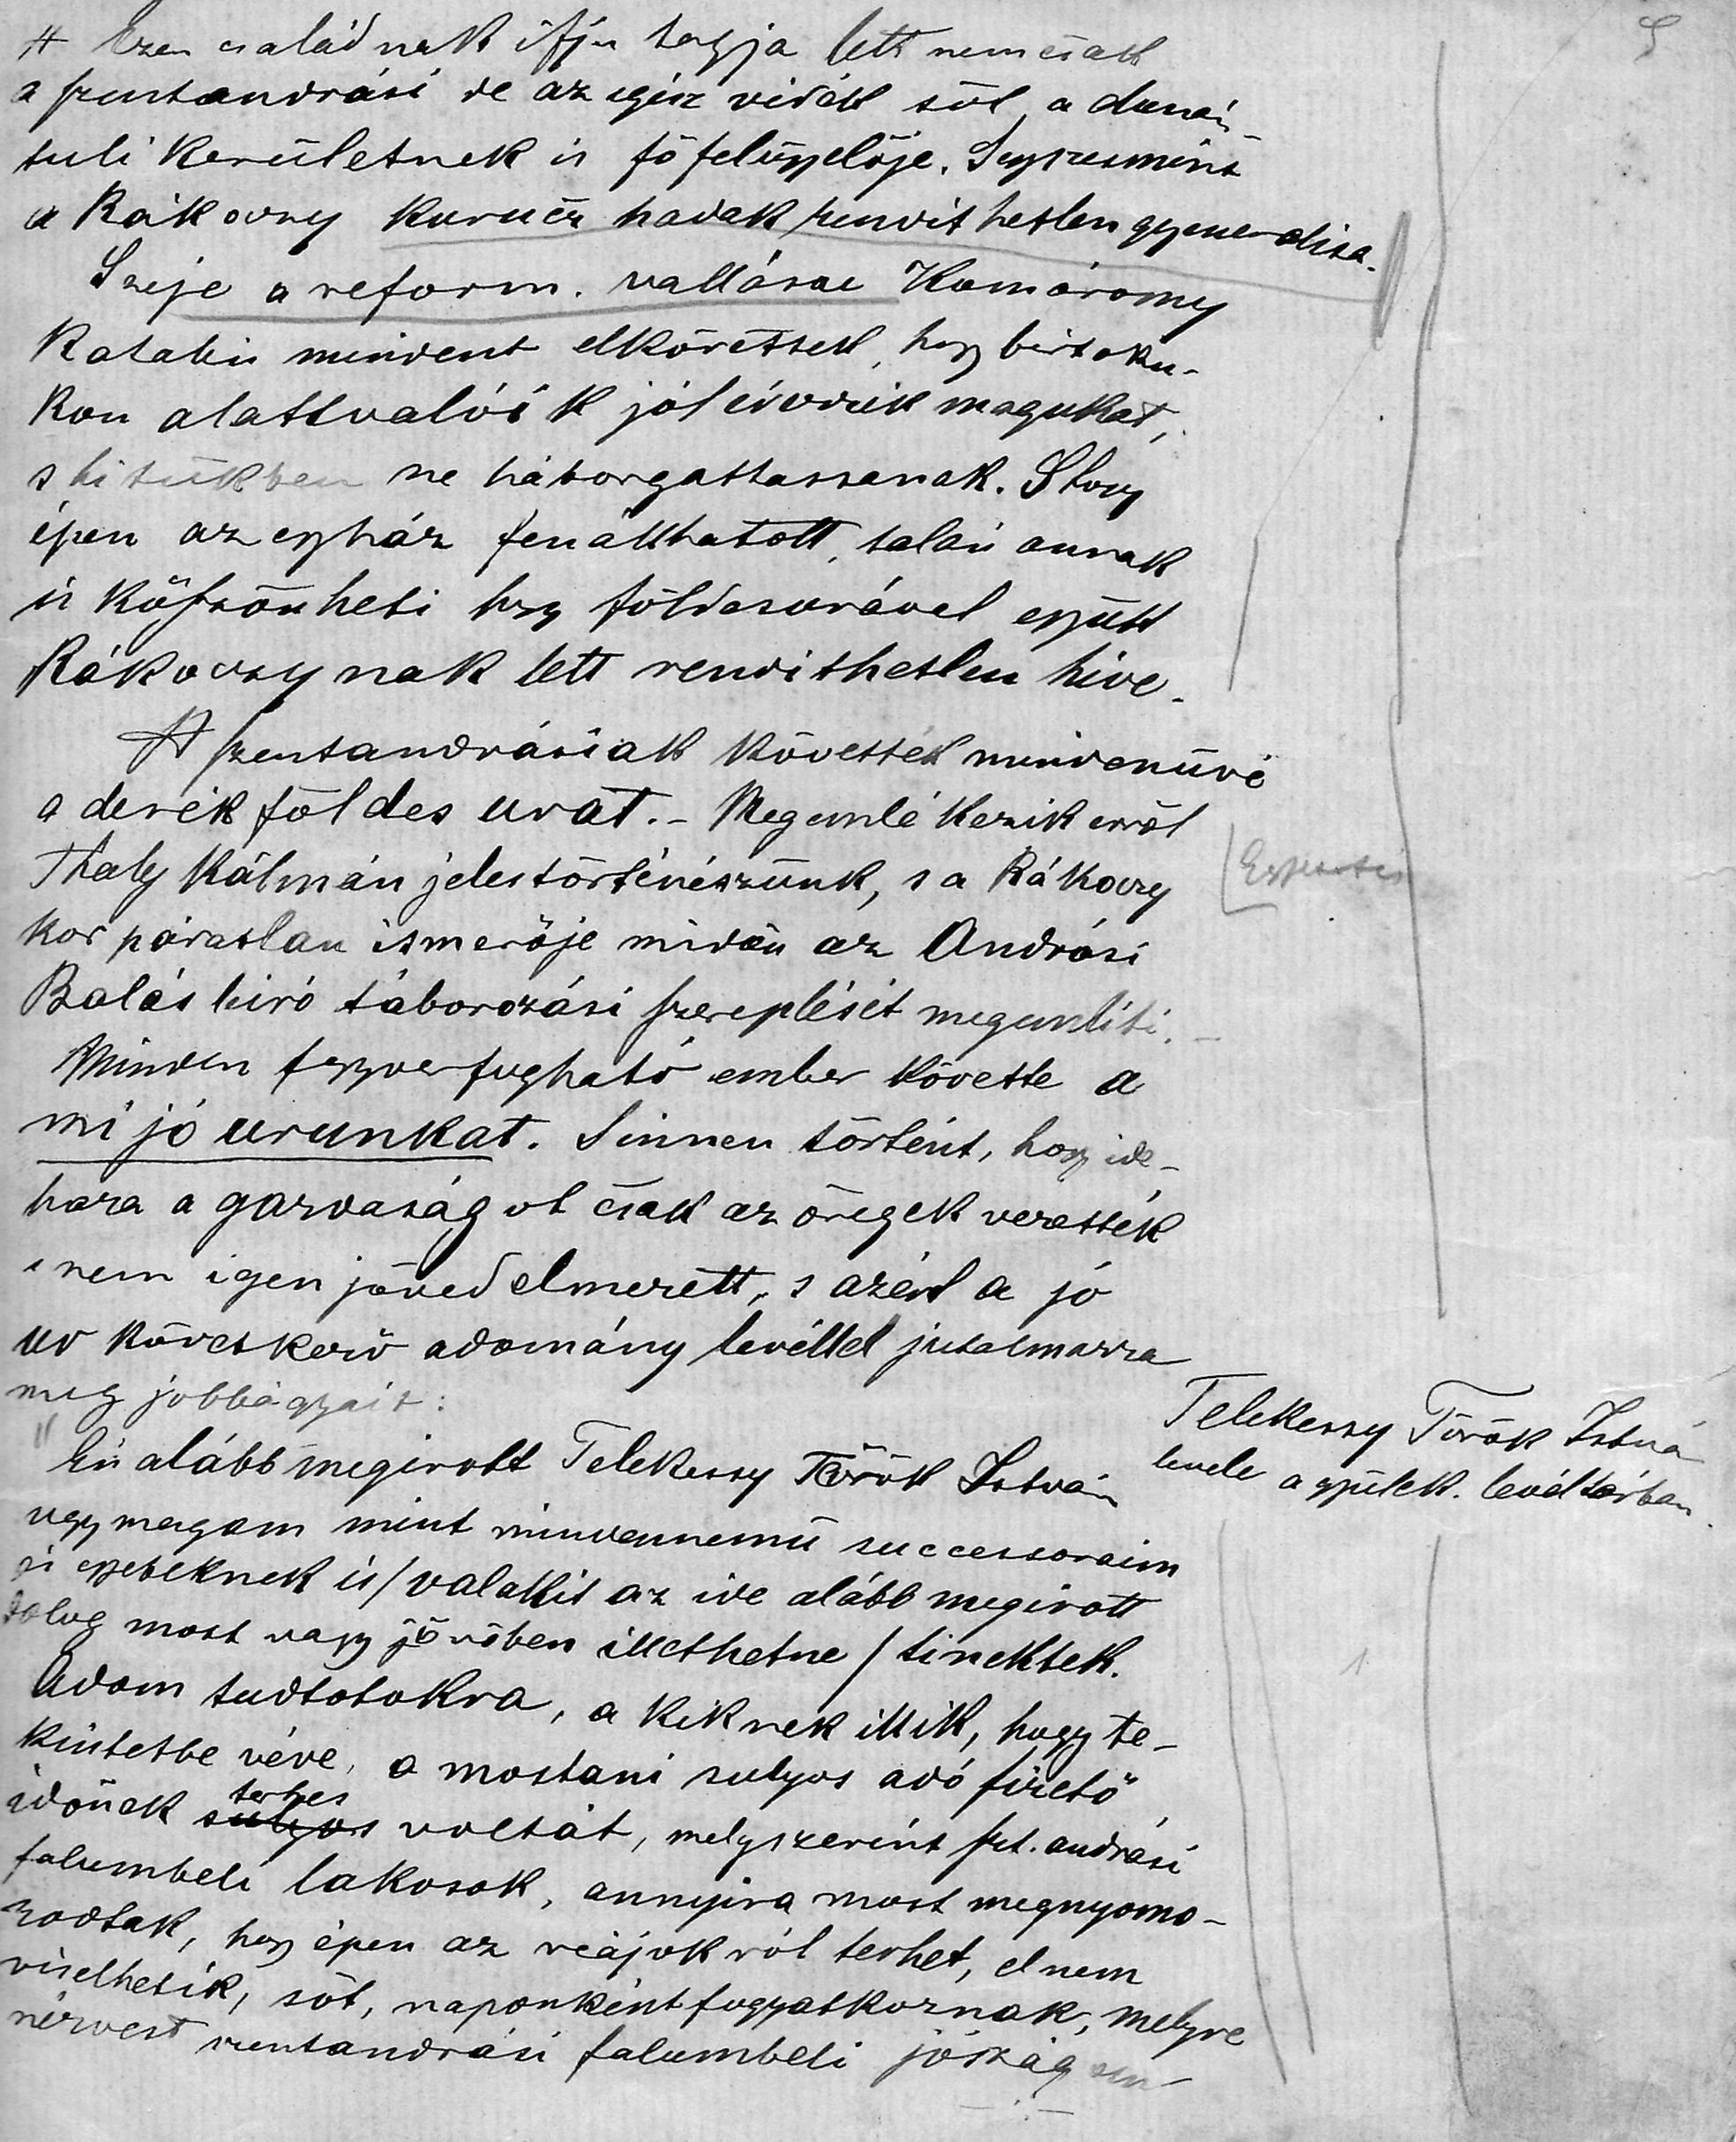 # Ezen családnak ifju tagja lett nemcsak
a szentandrási de az egész vidék sőt a dunán-
tuli kerületnek is főfelügyelője. Egyszesmint
a Rákoczy kurucz hadak rendithetlen gyenerálisa.
Neje a reform. vallásu Komáromy
Katalin mindent elkövettek, hogy birtoku-
kon alattvalóik jól érezzék magukat,
s hitükben ne háborgattassanak. S hogy
épen az egyház fenállhatott, talán annak
is köszönheti hogy földesurával együtt
Rákoczynak lett rendithetlen hive.
A szentandrásiak követték mindenüvé
a derék földes urat. - Megemlékezik erről
Thaly Kálmán jeles történészünk, s a Rákoczy
kor páratlan ismerője midőn az Andrási
Balás biró táborozási szereplését megemliti. -
Minden fegyverfogható ember követte a
mi jó urunkat. Innen történt, hogy ide-
haza a gazdaságot csak az öregek vezették
s nem igen jövedelmezett, s azért a jó
ur következő adomány levéllel jutalmazza
meg jobbágyait:
Telekessy Török Istvá
levele a gyülek. levéltárban
"Én alább megirott Telekessy Török István
ugy magam mint mindennemü successoraim
és egyebeknek is / valakit az ide alább megirott
dolog most vagy jövőben illethetne / tinektek.
Adom tudtotokra, a kiknek illik, hogy te-
kintetbe véve, a mostani sulyos adó fizető
időnek sulyos terhes voltát, melyszerint szt. andrási
falumbeli lakosok, annyira most megnyomo-
rodtak, hogy épen az reájok ról terhet, el nem
viselhetik, sőt, naponként fogyatkoznak, melyre
nézvest szentandrási falumbeli jószág